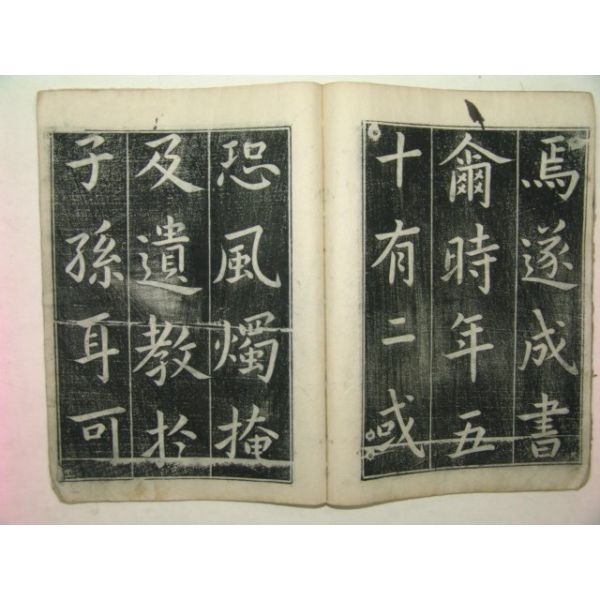 焉遂成書
爾時年五
十有二或
恐風燭掩
及遺教於
子孫耳可